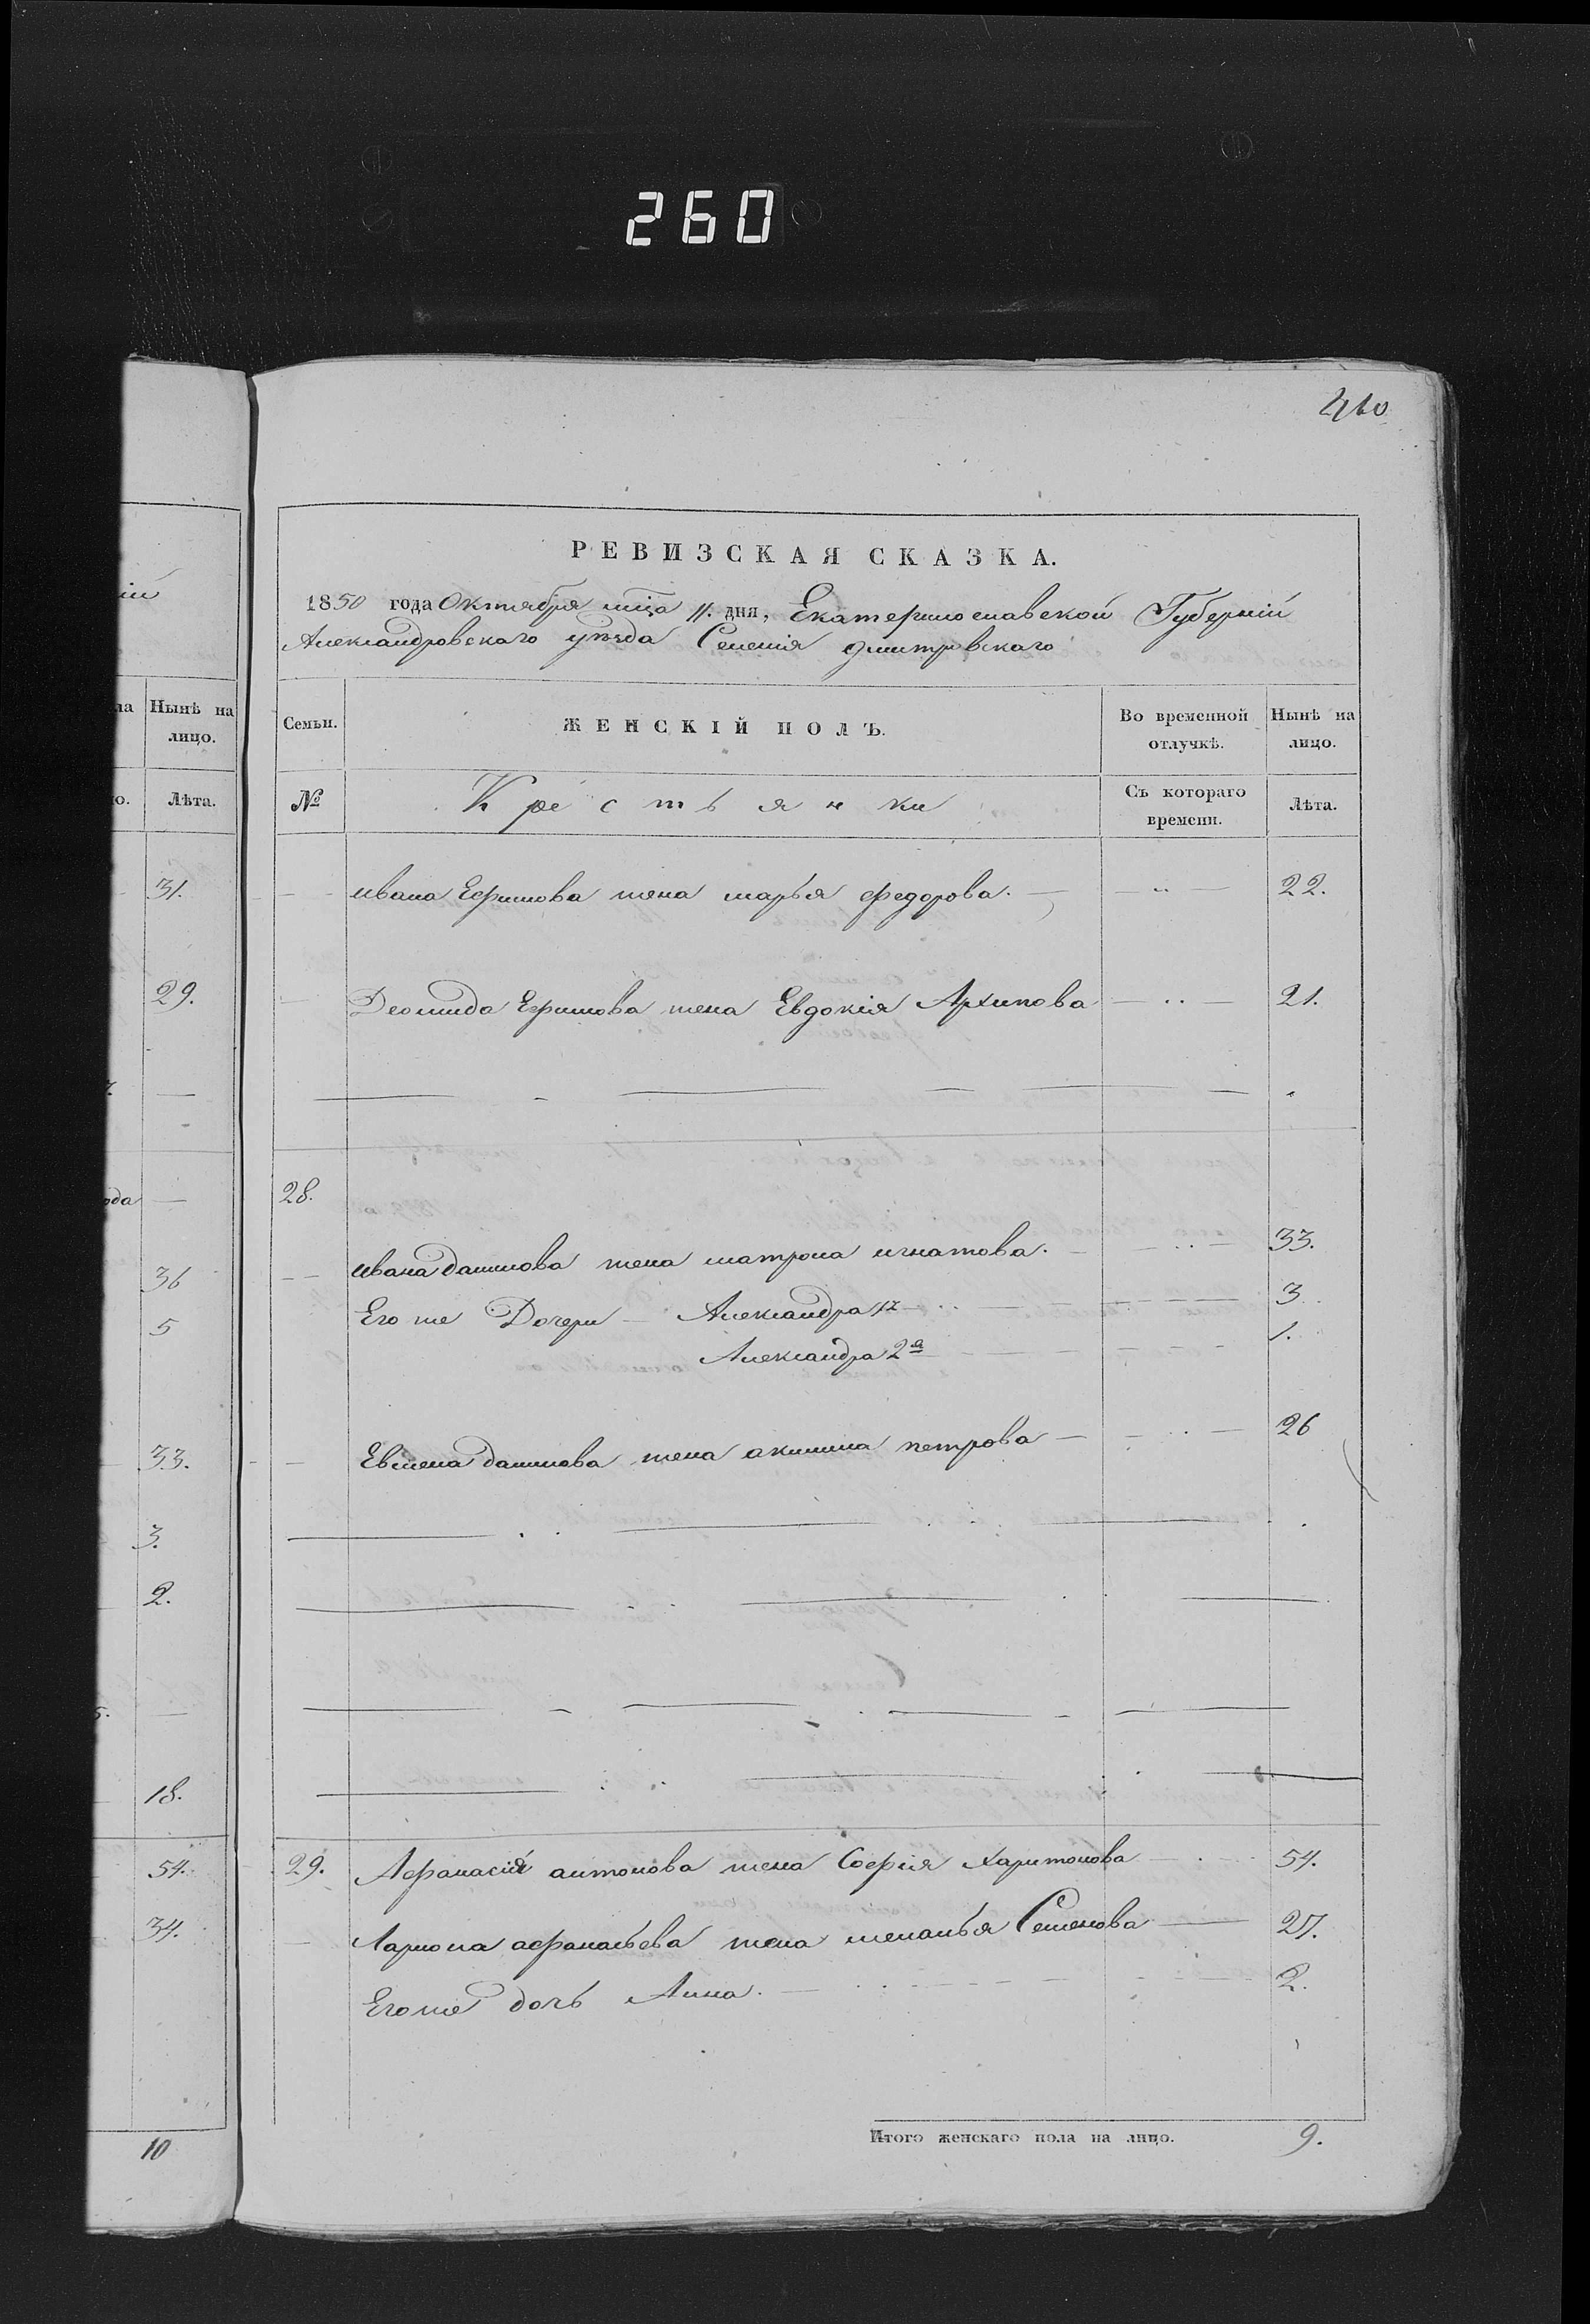 260
460
РЕВИЗСКАЯ СКАЗКА.
1850 года Октября мца 11. дня, Екатеринославской Губерніи
Александровскаго уѣзда Селенія дмитровскаго
Нынѣ на лицо.
Лѣта.
31.
29.
36
5
33.
3.
2.
18.
54.
34.
10
Семьи. ЖЕНСКІЙ ПОЛЪ. Во временной отлучкѣ. Нынѣ на лицо.
№ Крестьянки Съ котораго времени. Лѣта.
ивана Ефимова жена марья федорова. 22.
Деомида Ефимова жена Евдокія Архипова 21.
28.
ивана данилова жена матрона игнатова. 33.
Его же Дочери Александра 1я 3
Александра 2я 1.
Евмена данилова жена акилина петрова 26
29. Афанасія антонова жена Софія Харитонова 54.
Лариона афанасьева жена меланья Семенова 27.
Егоже дочь Анна. 2.
Итого женскаго пола на лицо. 9.